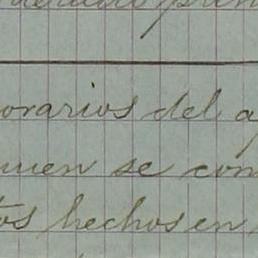 orarios del a
uien se con
tos hechos en